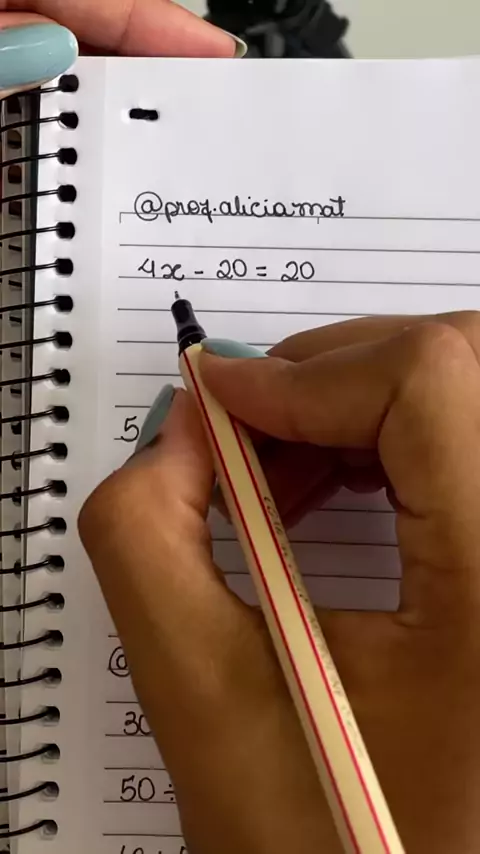 @prof.aliciamat
4x - 20 = 20
5
@
30
50 ÷